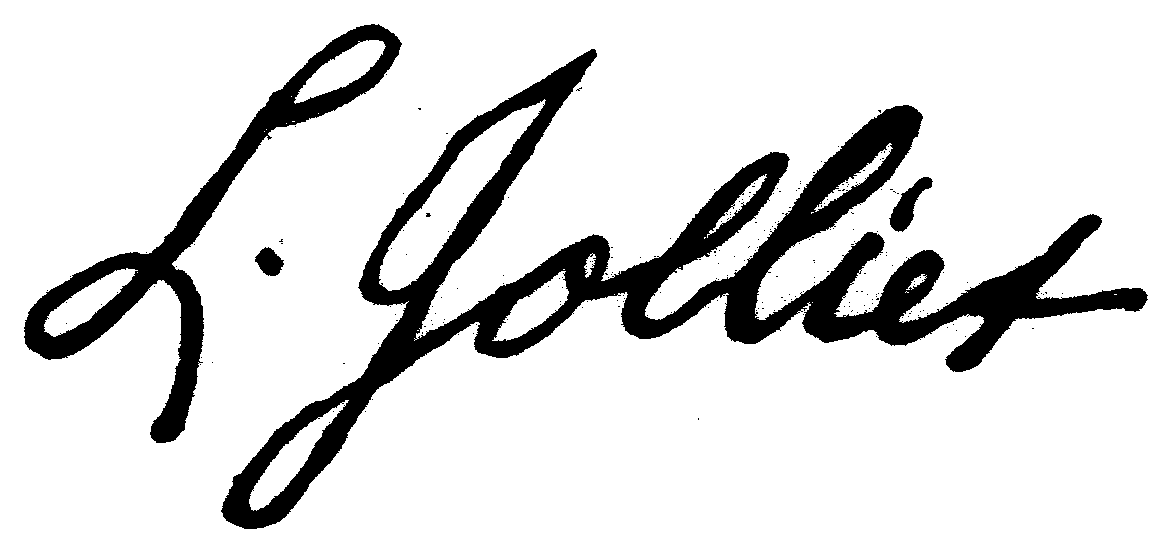 L. Jolliet